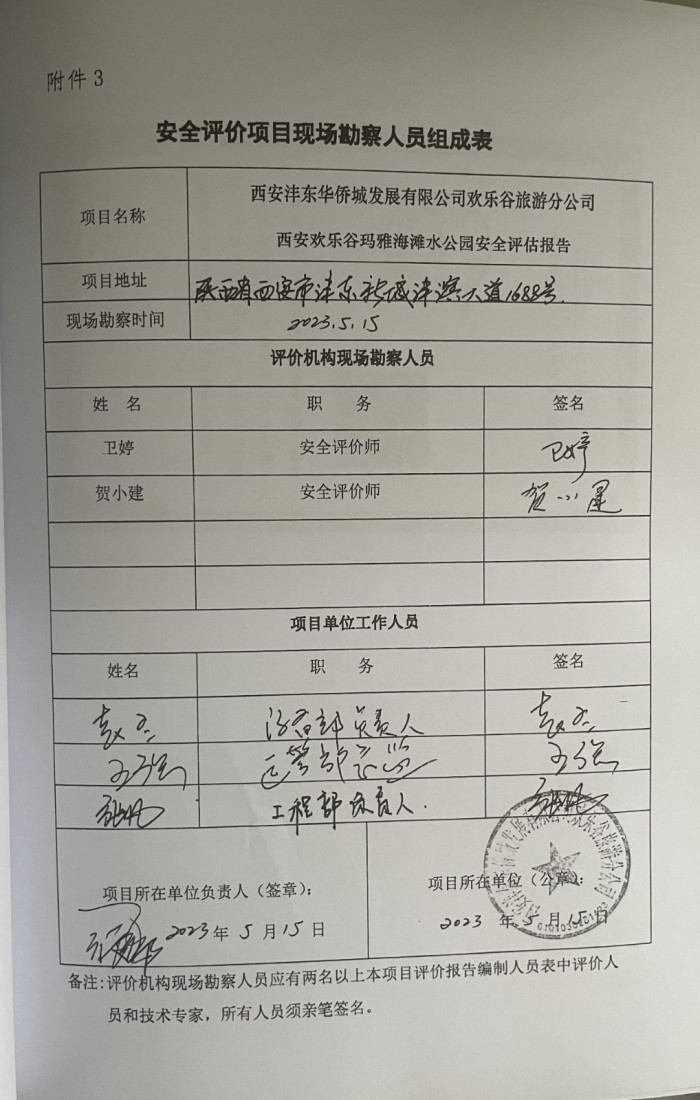 附件3
安全评价项目现场勘察人员组成表
项目名称
西安沣东华侨城发展有限公司欢乐谷旅游分公司
西安欢乐谷玛雅海滩水公园安全评估报告
项目地址
陕西省西安市沣东新城沣滨大道1688号
现场勘察时间
2023.5.15
评价机构现场勘察人员
姓 名 职 务 签名
卫婷 安全评价师 卫婷
贺小建 安全评价师 贺小建
项目单位工作人员
姓名 职 务 签名
部负责人
运营部总监
工程部负责人.
项目所在单位负责人（签章）：
2023年5月15日
项目所在单位（公章）：
2023年5月15日
备注：评价机构现场勘察人员应有两名以上本项目评价报告编制人员表中评价人
员和技术专家，所有人员须亲笔签名。